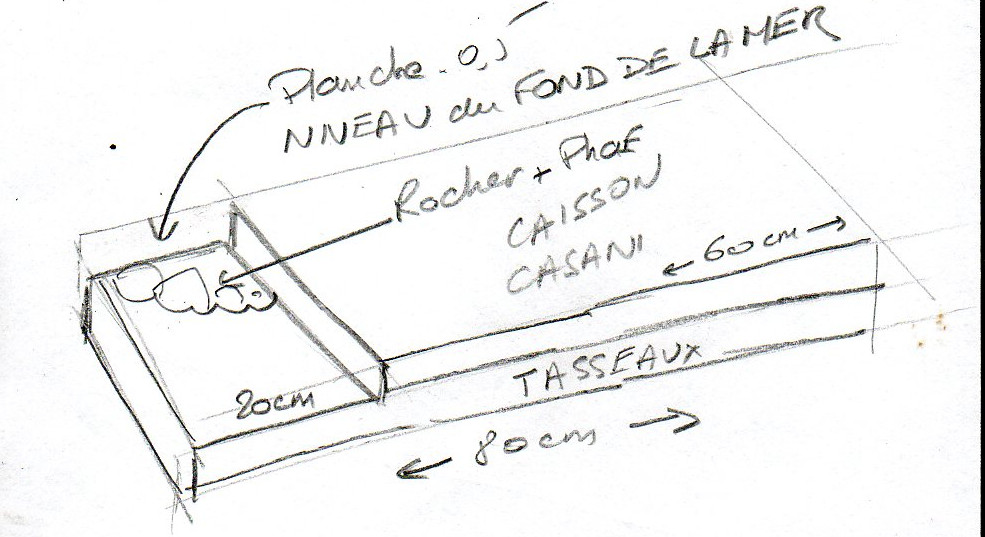 Planche . 0,5
NINEAU du FOND DE LA MER
Rocher + PhaE
CAISSON
CASANI
60cm
TASSEAUX
20cm
80cm